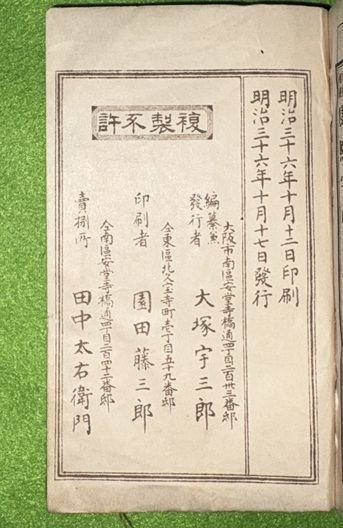 明治三十六年十月十二日印刷
明治三十六年十月十七日發行
許不製複
大阪市南區安堂寺橋通四丁目二百卅三番邸
編纂兼
發行者
大塚宇三郎
仝東區北久宝寺町壱丁目五十九番邸
印刷者
園田藤三郎
仝南區安堂寺橋通四丁目二百四十二番邸
賣捌所
田中太右衛門